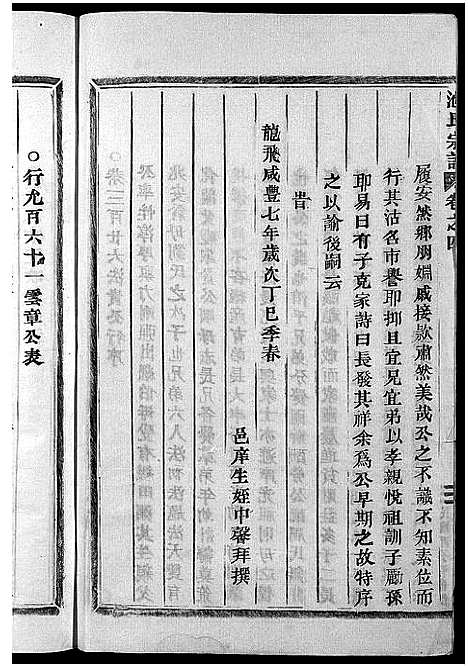 氏宗譜 卷之四
履安然鄉朋婣戚接款肅然美哉公之不識不知素位而
行其沽名市譽耶抑且宜兄宜弟以孝親悅祖訓子勵孫
耶易日有子克家詩曰長發其祥余為公早期之故特序
之以諭後嗣云
旹
龍飛咸豐七年歲次丁巳季春
邑庠生姪中馨拜撰
○行九百六十一雲章公表